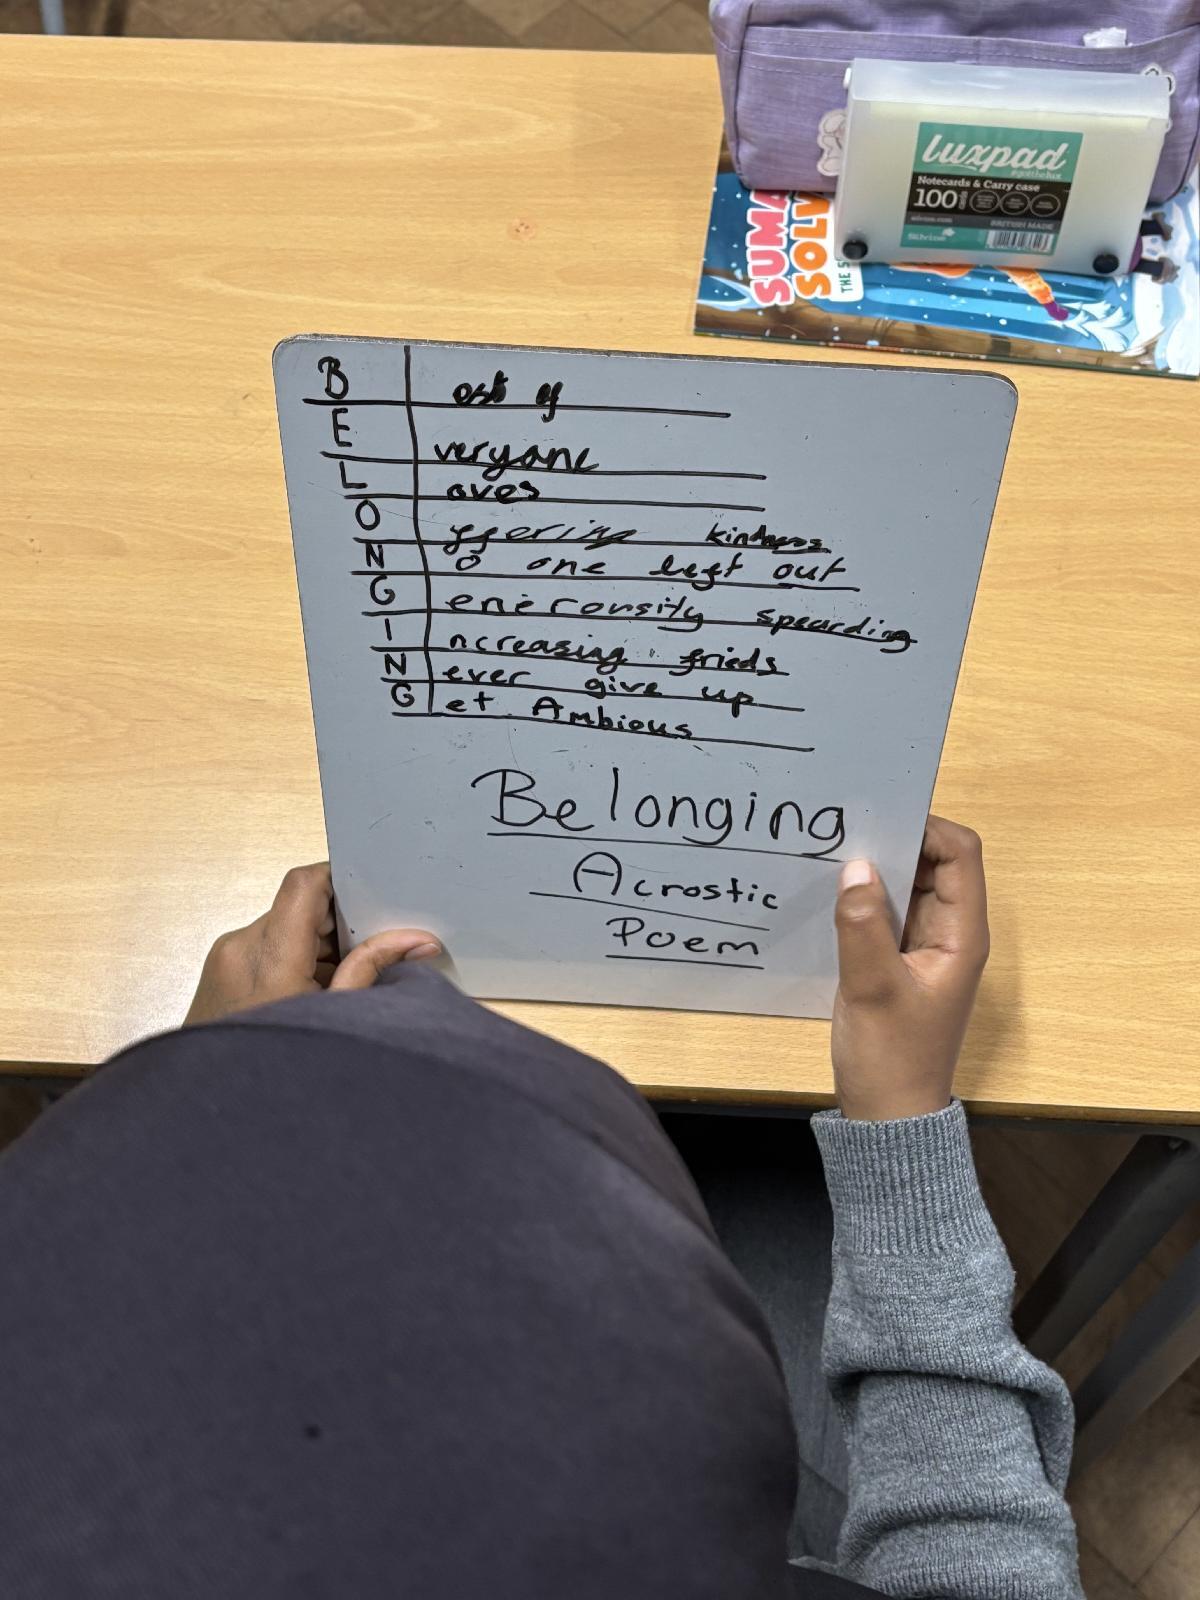 luxpad
#gotthelux
Notecards & Carry case
100
BRITISH MADE
Silvine
SUMA
SOLV
THE S
B
E veryone
L oves
O ffering kindness
N o one left out
G enerousity spearding
I ncreasing frieds
N ever give up
G et Ambious
Belonging
Acrostic
Poem